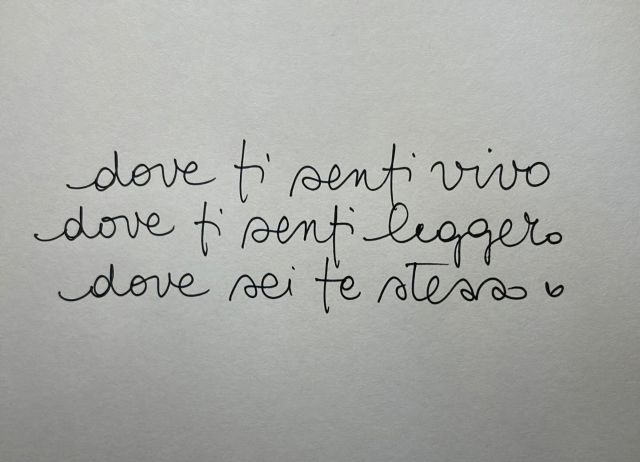 dove ti senti vivo
dove ti senti leggero
dove sei te stesso